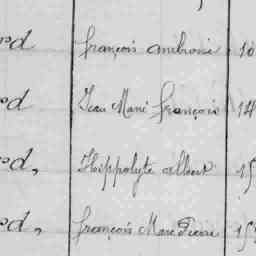 ed François Ambroise 10
ed Jean Marie François 14
ed, Hippolyte Albert 15
ed, François Marie Pierre 15